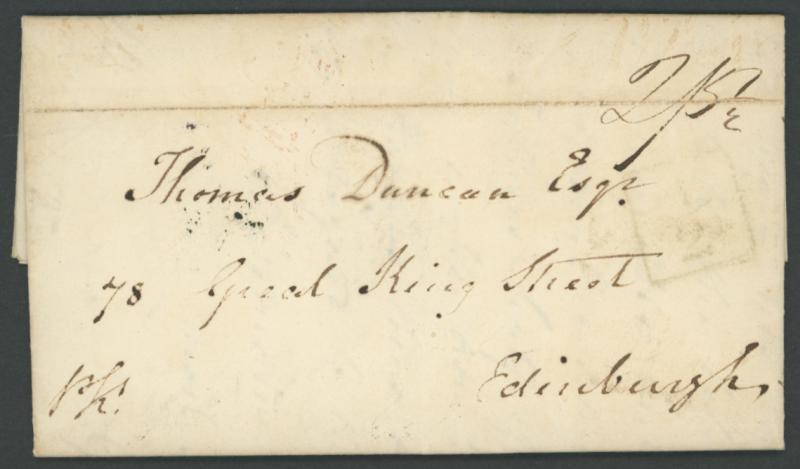 Thomas Duncan Esqr.
78 Great King Street
Edinburgh,